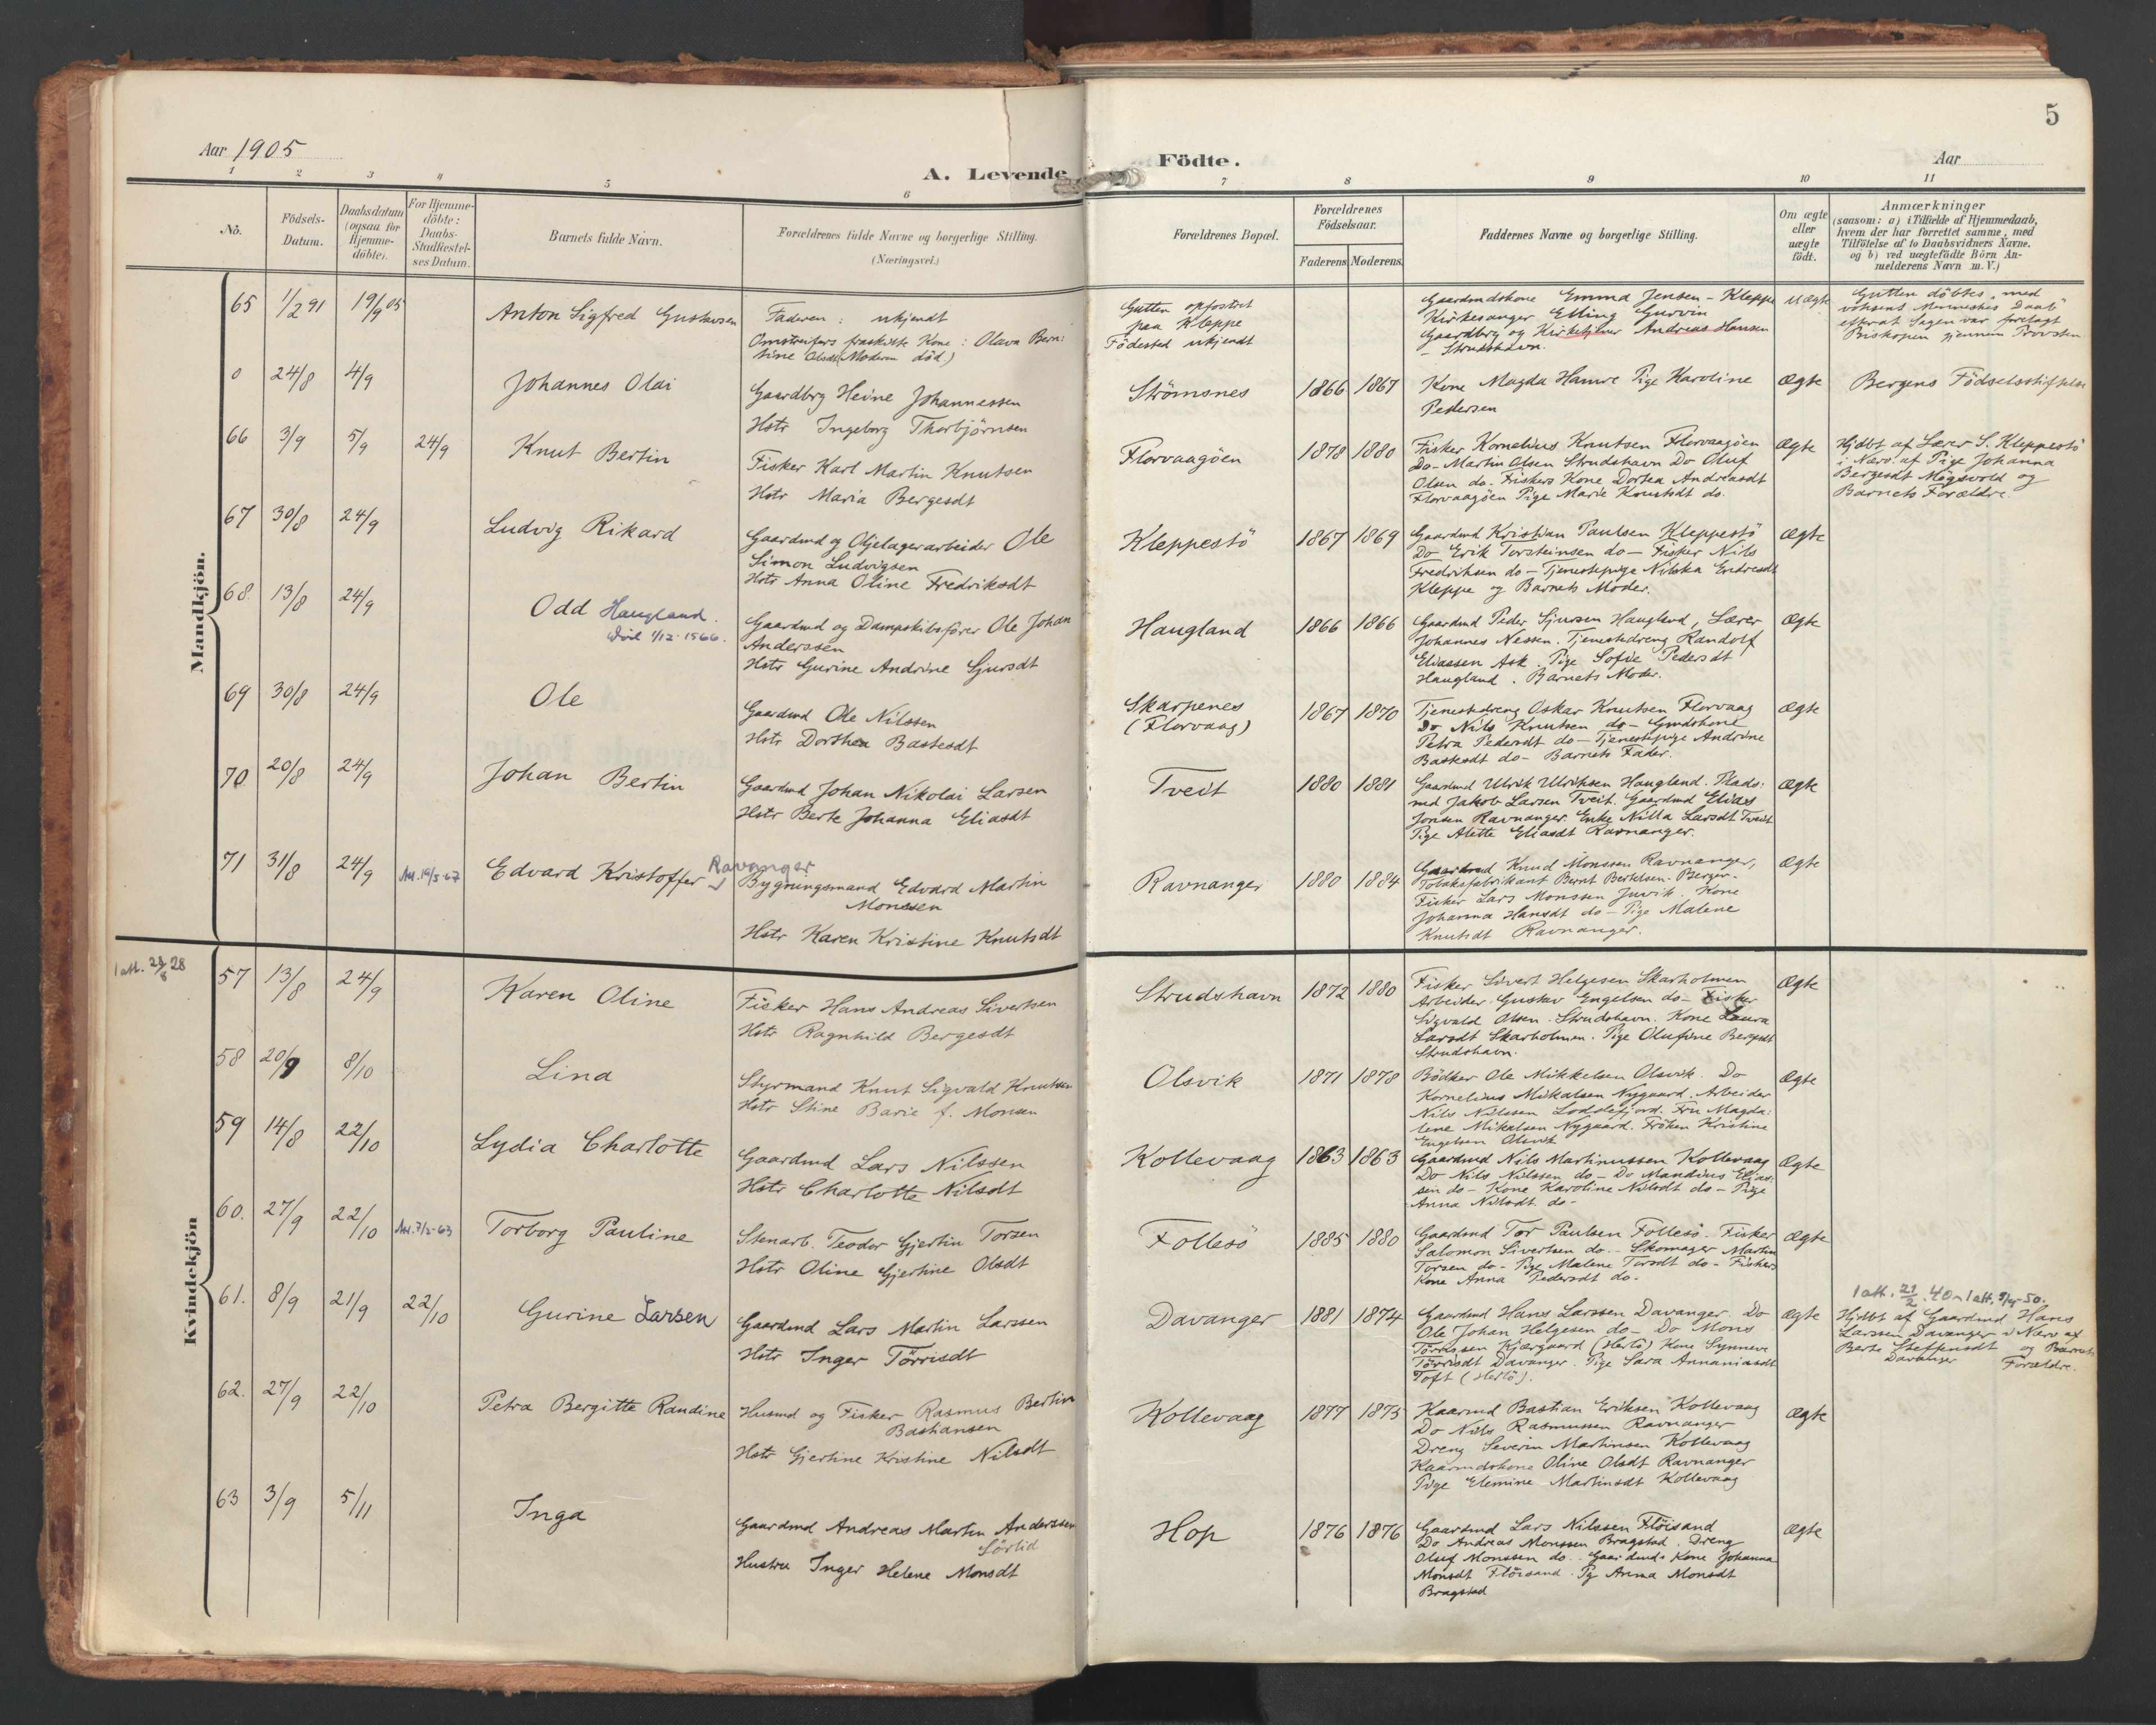 5
Aar 1905
A. Levende
Födte.
Aar
1 2 3 4 5 6 7 8 9 10 11
Nö.
Födsels-
Datum.
Daabsdatum
(ogsaa for
Hjemme-
döbte).
For Hjemme-
döbte:
Daabs-
Stadfæstel-
ses Datum.
Barnets fulde Navn.
Forældrenes fulde Navne og borgerlige Stilling.
(Næringsvei.)
Forældrenes Bopæl.
Forældrenes
Födselsaar.
Faderens
Moderens.
Faddernes Navne og borgerlige Stilling.
Om ægte
eller
uægte
födt.
Anmærkninger
(saasom: a) i Tilfælde af Hjemmedaab,
hvem der har forrettet samme, med
Tilföielse af to Daabsvidners Navne.
og b) ved uægtefödte Börn An-
melderens Navn m. V.)
Mandkjön.
65 1/2 91 19/9 05
Anton Sigfred Gustavsen
Faderen: ukjendt
Omstreifers fraskilte Kone: Olava Bern:
tine Olsdt (Moderen död.)
Gutten opfostret
paa Kleppe
Födested ukjendt
Gaardmdskone Emma Jensen - Kleppe
Kirkesanger Elling Gurvin
Gaardbrg og Kirketjener Andreas Hansen
- Strudshavn.
uægte
Gutten döbtes, med
voksent Menneskes Daab
efterat Sagen var forelagt
Biskopen gjennem Provsten
0 24/8 4/9
Johannes Olai
Gaardbrg Heine Johannessen
Hstr Ingeborg Thorbjörnsen
Strömsnes
1866 1867
Kone Magda Hamre Pige Karoline
Pedersen
Ægte
Bergens Födselsstiftelse
66 3/9 5/9 24/9
Knut Bertin
Fisker Karl Martin Knutsen
Hstr Maria Bergesdt
Florvaagöen
1878 1880
Fisker Kornelius Knutsen Florvaagöen
Do - Martin Olsen Strudshavn Do Oluf
Olsen do. Fiskers Kone Dortea Andreasdt
Florvaagöen Pige Marie Knutsdt do.
Ægte
Hjdbt af Lærer S. Kleppestö
i Nærv. af Pige Johanna
Bergesdt Mögsvold og
Barnets Forældre.
67 30/8 24/9
Ludvig Rikard
Gaardmd og Oljelagerarbeider Ole
Simon Ludvigsen
Hstr Anna Oline Fredriksdt
Kleppestö
1867 1869
Gaardmd Kristian Paulsen Kleppestö
Do Erik Torsteinsen do - Fisker Nils
Fredriksen do - Tjenestepige Nilska Endresdt
Kleppe og Barnets Moder.
Ægte
68. 13/8 24/9
Odd Haugland.
Död 1/12-1566.
Gaardmd og Dampskibsförer Ole Johan
Anderssen
Hstr Gurine Andrine Sjursdt
Haugland
1866 1866
Gaardmd Peder Sjursen Haugland, Lærer
Johannes Nessen. Tjenestedreng Randolf
Eliassen Ask. Pige Sofie Pedersdt
Haugland. Barnets Moder.
Ægte
69 30/8 24/9
Ole
Gaardmd Ole Nilssen
Hstr Dorthea Bastesdt
Skarpenes
(Florvaag)
1867 1870
Tjenestedreng Oskar Knutsen Florvaag
Do Nils Knutsen do - Gmdskone
Petra Pedersdt do - Tjenestepige Andrine
Bastesdt do - Barnets Fader.
Ægte
70 20/8 24/9
Johan Bertin
Gaardmd Johan Nikolai Larsen
Hstr Berte Johanna Eliasdt
Tveit
1880 1881
Gaardmd Ulrik Ulriksen Haugland. Plads:
md Jakob Larsen Tveit. Gaardmd Elias
Jonsen Ravnanger. Enke Nilla Larsdt Tveit
Pige Alette Eliasdt Ravnanger.
Ægte
71 31/8 24/9 Att. 19/5-67
Edvard Kristoffer Ravanger
Bygningsmand Edvard Martin
Monssen
Hstr Karen Kristine Knutsdt
Ravnanger
1880 1884
Gaardmd Knud Monssen Ravnanger,
Tobaksfabrikant Bernt Bertelsen - Bergen -
Fisker Lars Monssen Juvik. Kone
Johanna Hansdt do - Pige Malene
Knutsdt Ravnanger.
Ægte
Kvindekjön
1 att. 28/8 28
57 13/8 24/9
Karen Oline
Fisker Hans Andreas Sivertsen
Hstr Ragnhild Bergesdt
Strudshavn
1872 1880
Fisker Sivert Helgesen Skarholmen
Arbeider Gustav Engelsen do - Fisker
Sigvald Olsen. Strudshavn. Kone Laura
Larsdt Skarholmen. Pige Olufine Bergesdt
Strudshavn.
Ægte
58 20/9 8/10
Lina
Styrmand Knut Sigvald Knutsen
Hstr Stine Barie f. Monsen
Olsvik
1871 1878
Bödker Ole Mikkelsen Olsvik. Do
Kornelius Mikalsen Nygaard. Arbeider
Nils Nilssen Loddefjord. Fru Magda:
lene Mikalsen Nygaard. Fröken Kristine
Engelsen Olsvik
Ægte
59 14/8 22/10
Lydia Charlotte
Gaardmd Lars Nilssen
Hstr Charlotte Nilsdt
Kollevaag
1863 1863
Gaardmd Nils Martinussen Kollevaag
Do Nils Nilssen do - Do Mandius Elias:
sen do - Kone Karoline Nilsdt do - Pige
Anna Nilsdt do -
Ægte
60. 27/9 22/10 Att. 7/2-63
Torborg Pauline
Stenarb. Teodor Gjertin Torsen
Hstr Oline Gjertine Olsdt
Follesö
1885 1880
Gaardmd Tor Paulsen Follesö. Fisker
Salomon Sivertsen do. - Skomager Martin
Torsen do - Pige Malene Torsdt do - Fiskers
Kone Anna Pedersdt do -
Ægte
61. 8/9 21/9 22/10
Gurine Larsen
Gaardmd Lars Martin Larssen
Hstr Inger Törrisdt
Davanger
1881 1874
Gaardmd Hans Larssen Davanger. Do
Ole Johan Helgesen do - Do Mons
Törrissen Kjærgaard (Herlö) Kone Synneve
Törrisdt Davanger. Pige Sara Annaniasdt
Toft (Herlö).
Ægte
1 att. 21/2 40 - 1 att. 9/4-50.
Hjdbt af Gaardmd Hans
Larssen Davanger i Nærv af
Berte Steffensdt og Barnets
Davanger Forældre.
62. 27/9 22/10
Petra Bergitte Randine
Husmd og Fisker Rasmus Bertin
Bastiansen
Hstr Gjertine Kristine Nilsdt
Kollevaag
1877 1875
Kaarmd Bastian Eriksen Kollevaag
Do Nils Rasmussen Ravnanger
Dreng Severin Martinsen Kollevaag
Kaarmdskone Oline Olsdt Ravnanger
Pige Elemine Martinsdt Kollevaag
Ægte
63 3/9 5/11
Inga
Gaardmd Andreas Martin Anderssen
Sörlid
Hustru Inger Helene Monsdt
Hop
1876 1876
Gaardmd Lars Nilssen Flöisand
Do Andreas Monssen Bragstad. Dreng
Oluf Monssen do. Gaardmds Kone Johanna
Monsdt Flöisand. Pg Anna Monsdt
Bragstad
Ægte